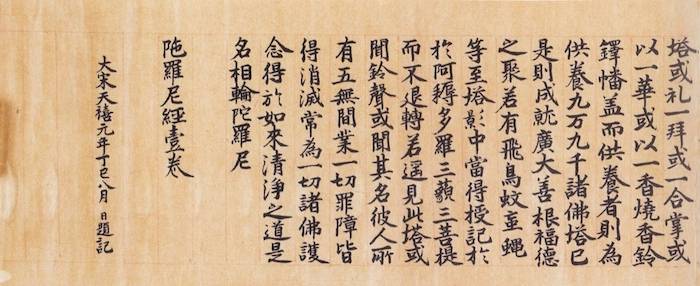 塔或礼一拜或一合掌或
以一華或以一香燒香鈴
鐸幡盖而供養者則為
供養九万九千諸佛塔已
是則成就廣大善根福德
之聚若有飛鳥蚊䖟蠅
等至塔影中當得授記於
於阿耨多羅三藐三菩提
而不退轉若遥見此塔或
聞鈴聲或聞其名彼人所
有五無間業一切罪障皆
得消滅常為一切諸佛護
念得於如來清淨之道是
名相輪陀羅尼
陁羅尼經壹卷
大宋天禧元年丁巳八月 日題記